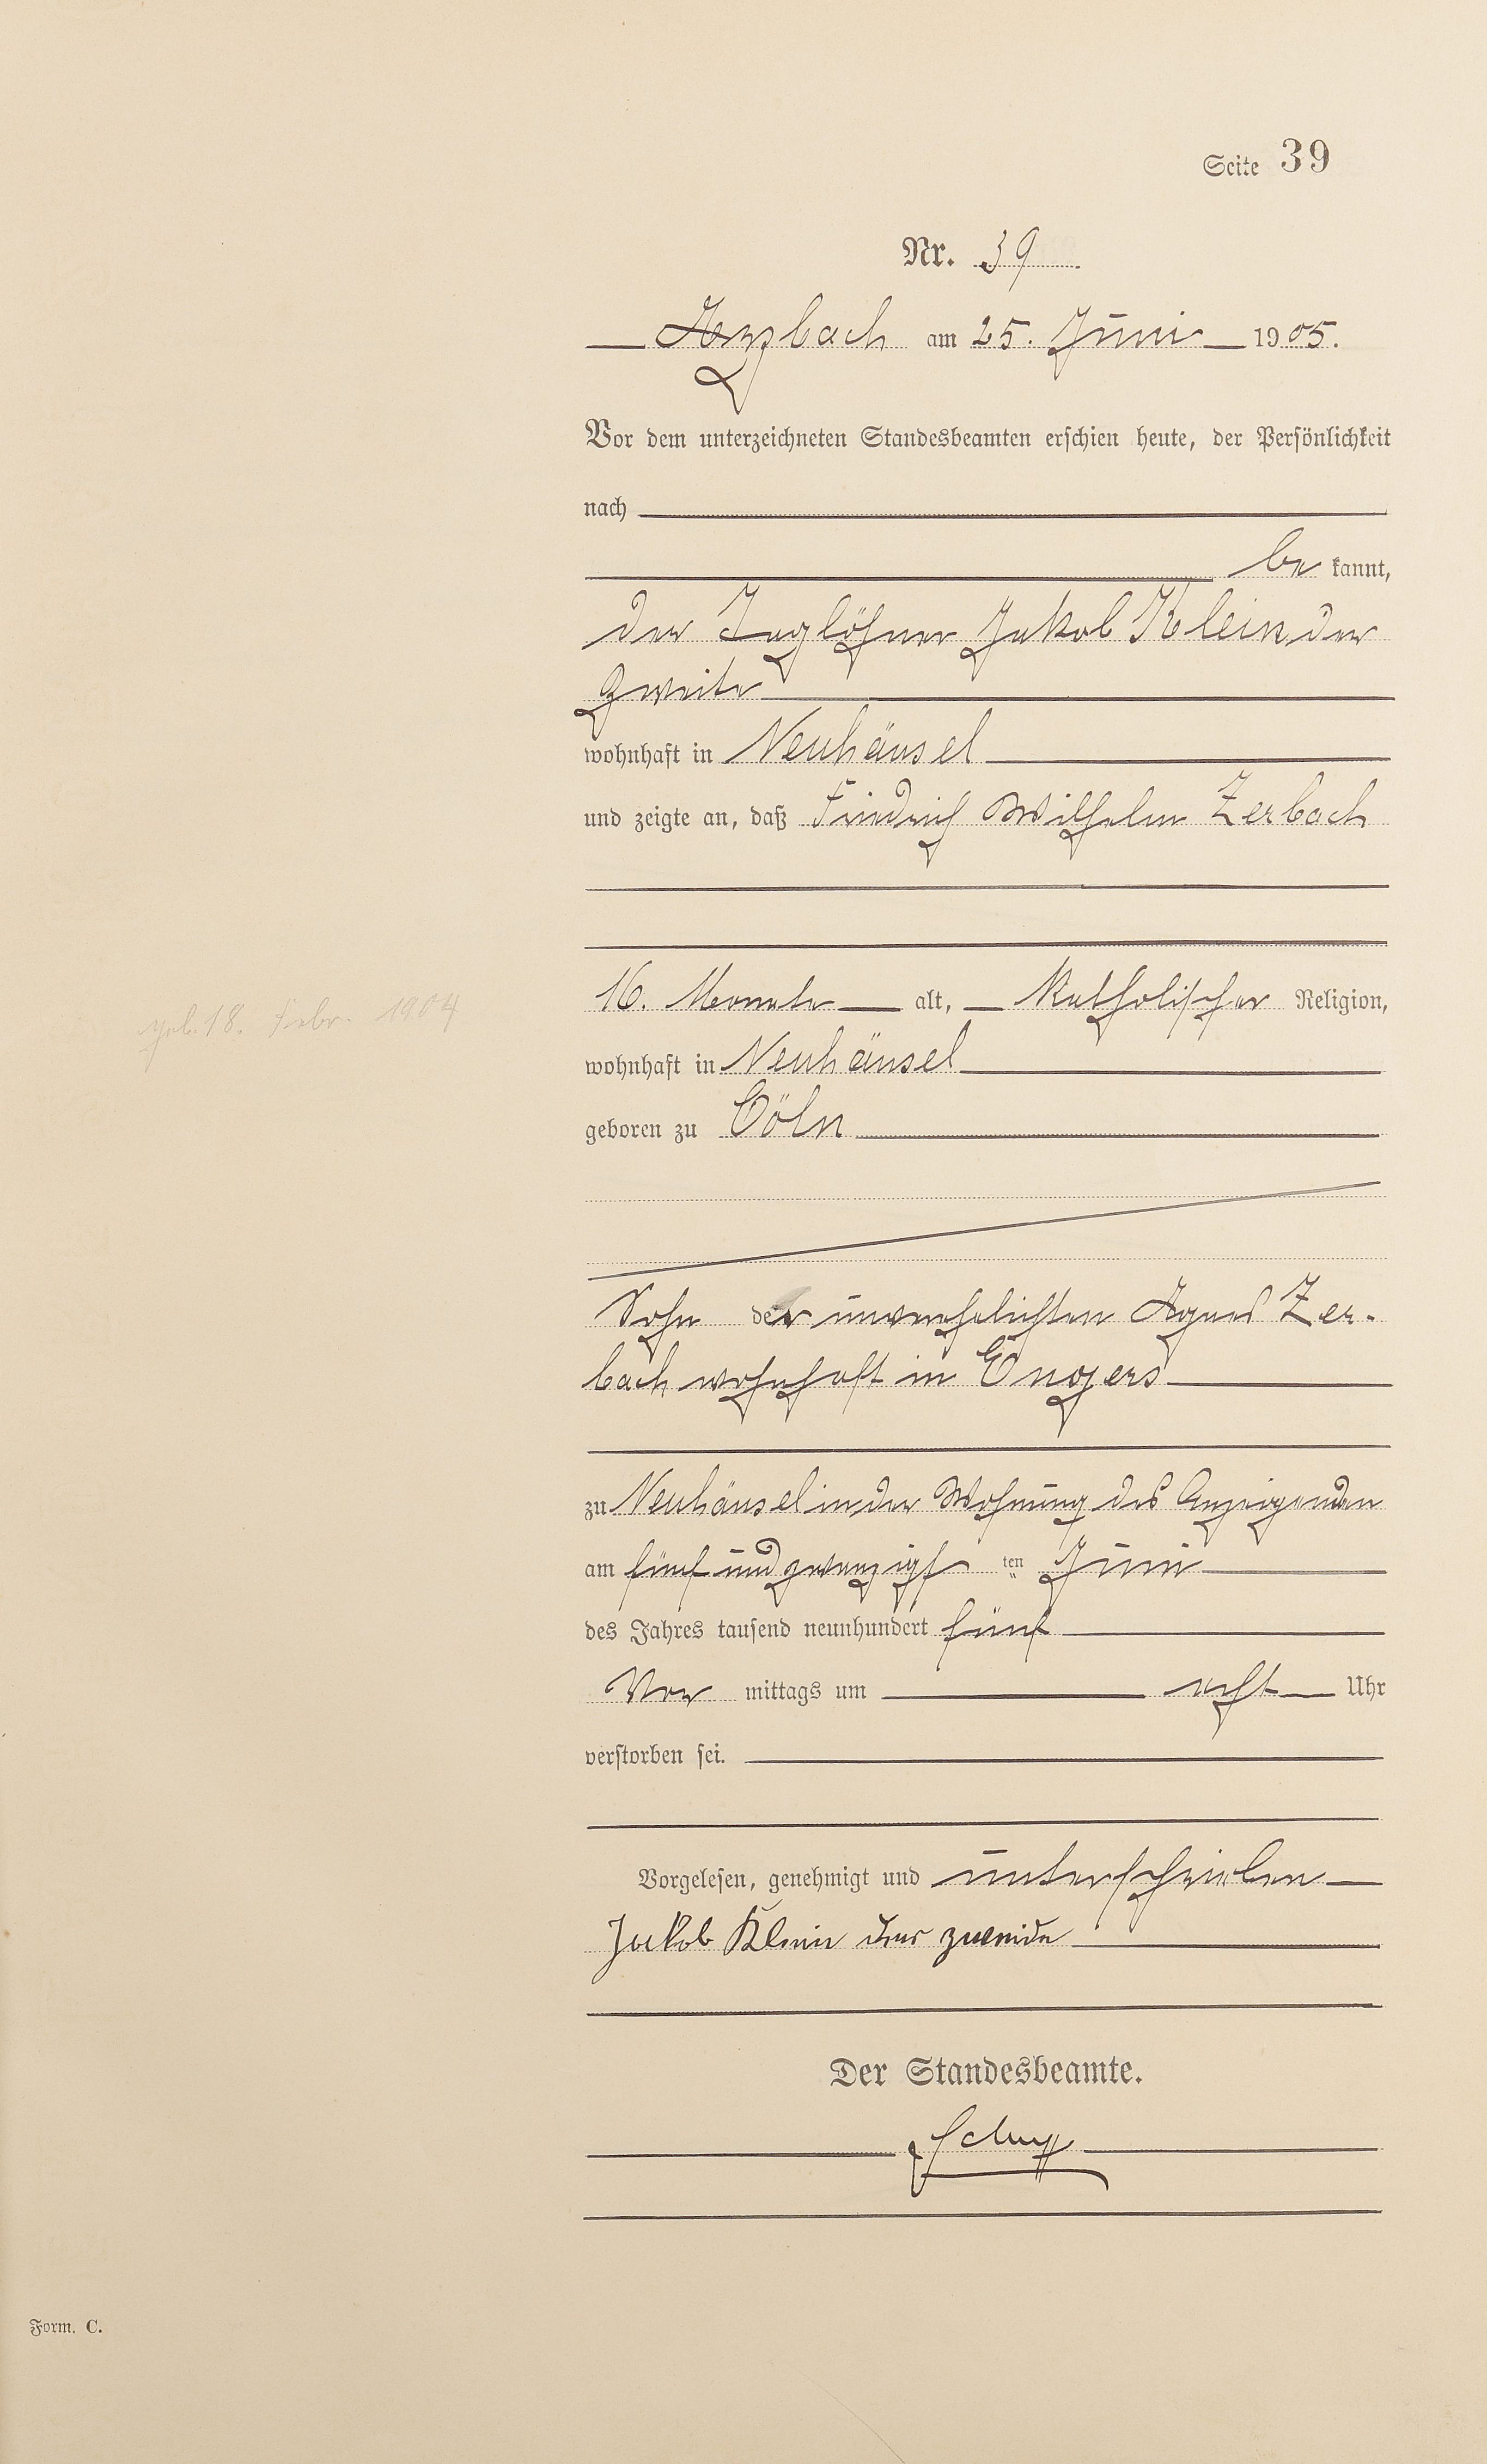 Seite 39
Nr. 39
Arzbach am 25. Juni 1905.
Vor dem unterzeichneten Standesbeamten erschien heute, der Persönlichkeit
nach
be kannt,
der Taglöhner Jakob Klein der
zweite
wohnhaft in Neuhäusel
und zeigte an, daß Friedrich Wilhelm Zerbach
16. Monate alt, Katholischer Religion,
geb. 18. Febr. 1904
wohnhaft in Neuhäusel
geboren zu Cöln
Sohn der unverehelichten Agnes Zer-
bach wohnhaft in Engers
zu Neuhäusel in der Wohnung des Anzeigenden
am fünf und zwanzigs ten Juni
des Jahres tausend neunhundert fünf
Vor mittags um acht Uhr
verstorben sei.
Vorgelesen, genehmigt und unterschrieben
Jakob Klein der zweide
Der Standesbeamte.
Form. C.